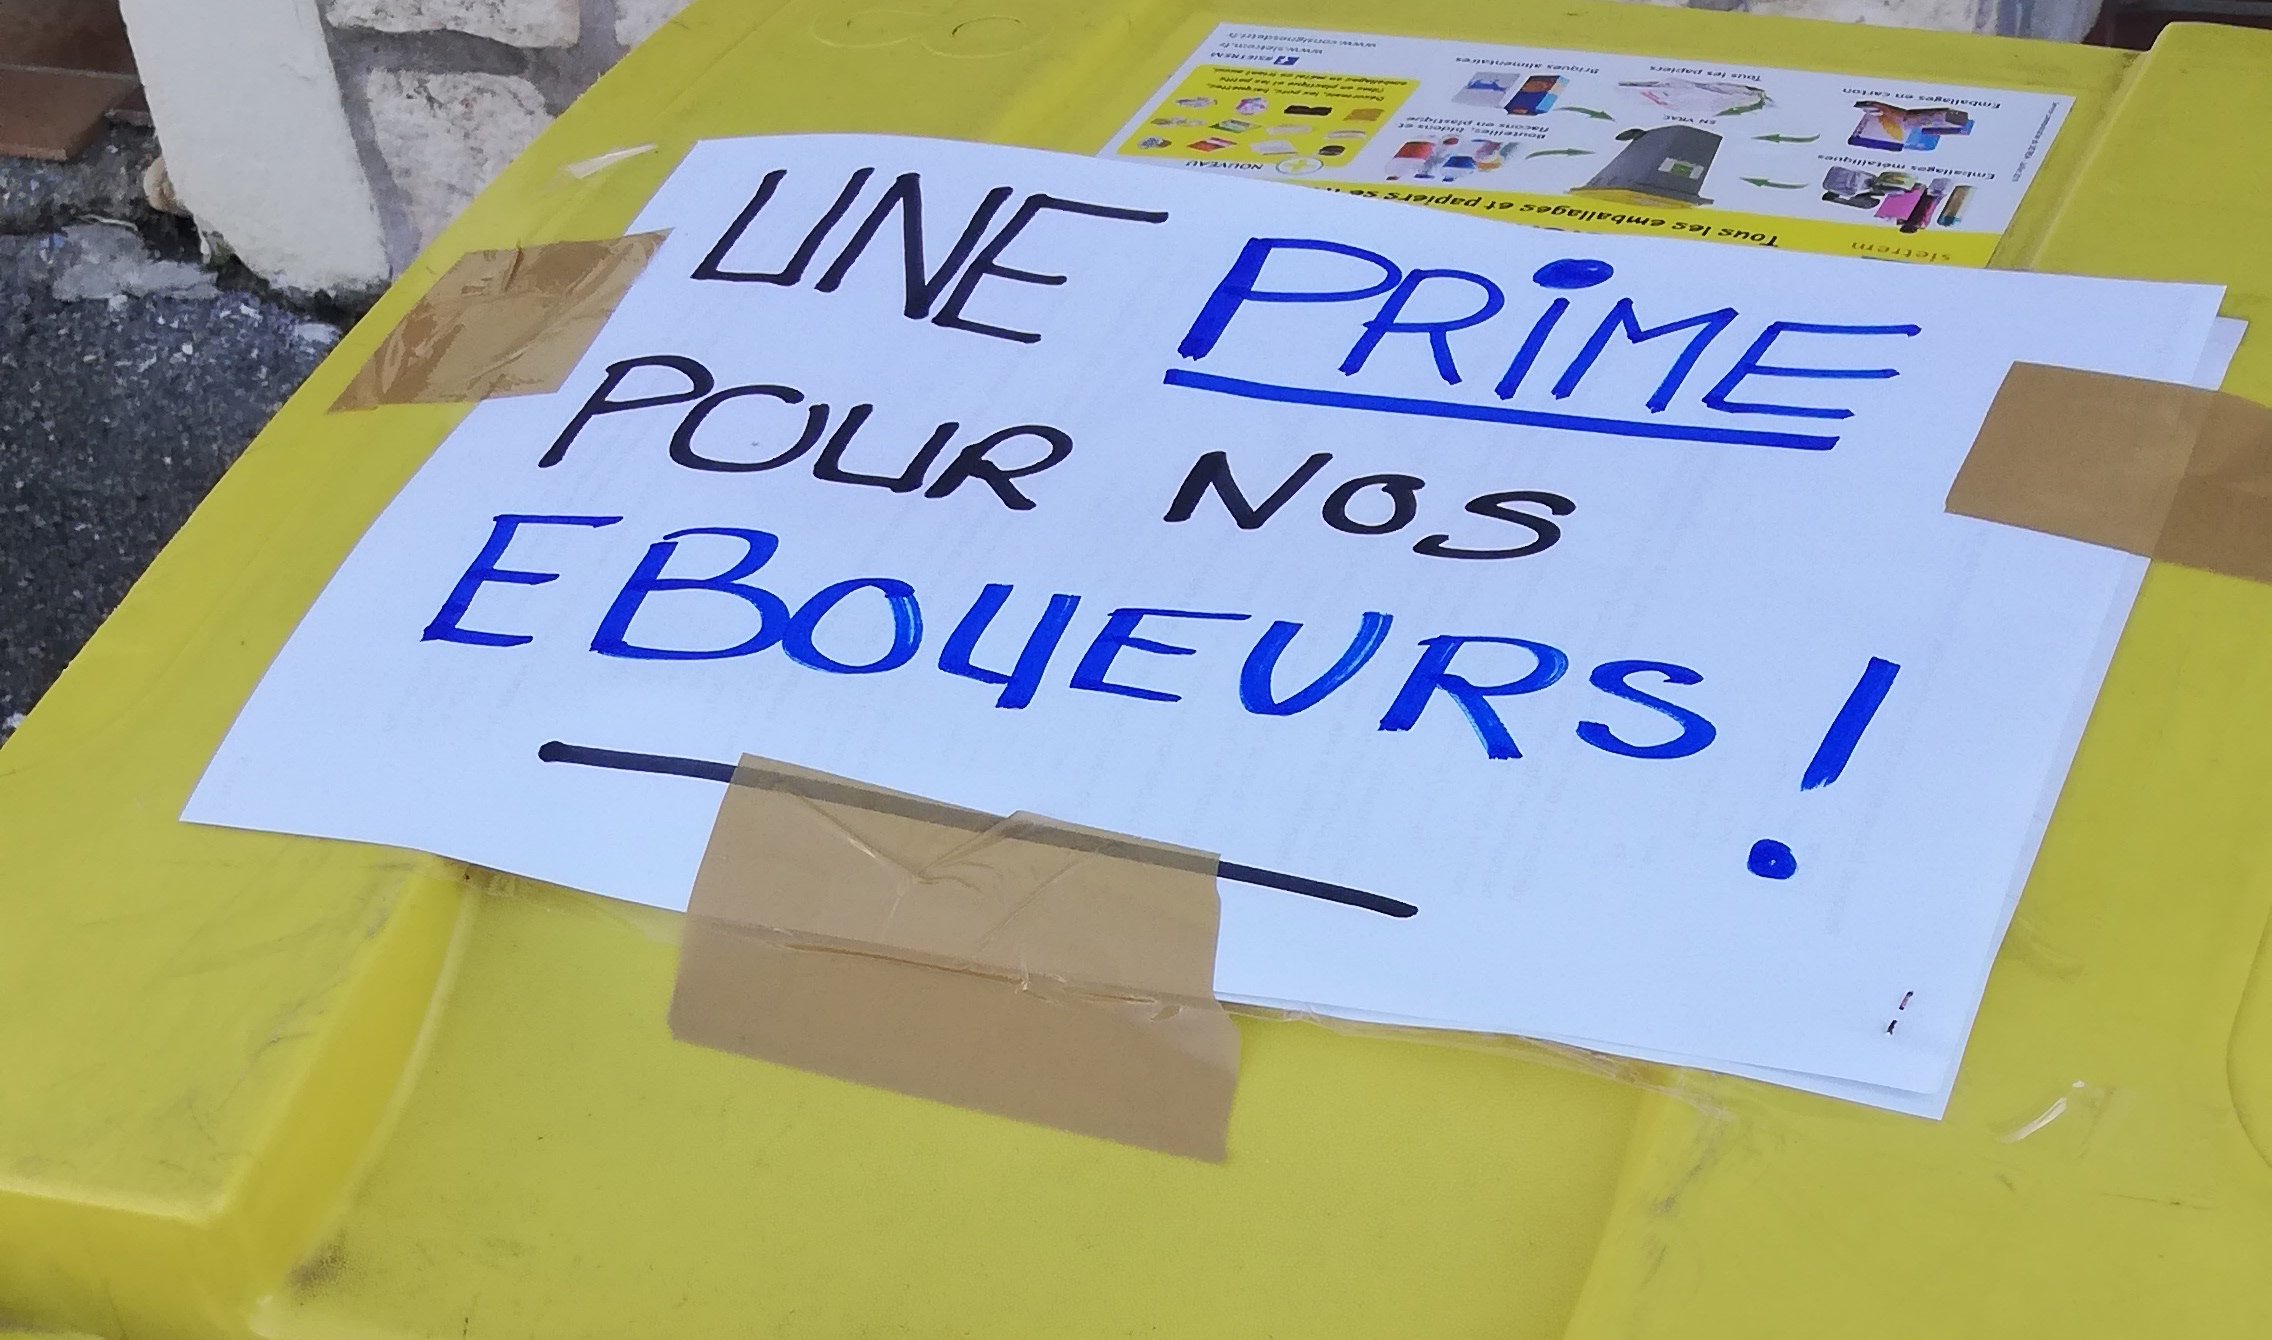 UNE PRIME
POUR NOS
EBOYEURS !
sietrem
Tous les emballages et papiers se
Emballages métalliques
Emballages en carton
Tous les papiers
EN VRAC
Briques alimentaires
Bouteilles, bidons et
flacons en plastique
NOUVEAU
Désormais, les pots, barquettes,
films en plastique et les petits
emballages en métal se trient aussi.
@SIETREM
www.sietrem.fr
www.consignesdetri.fr